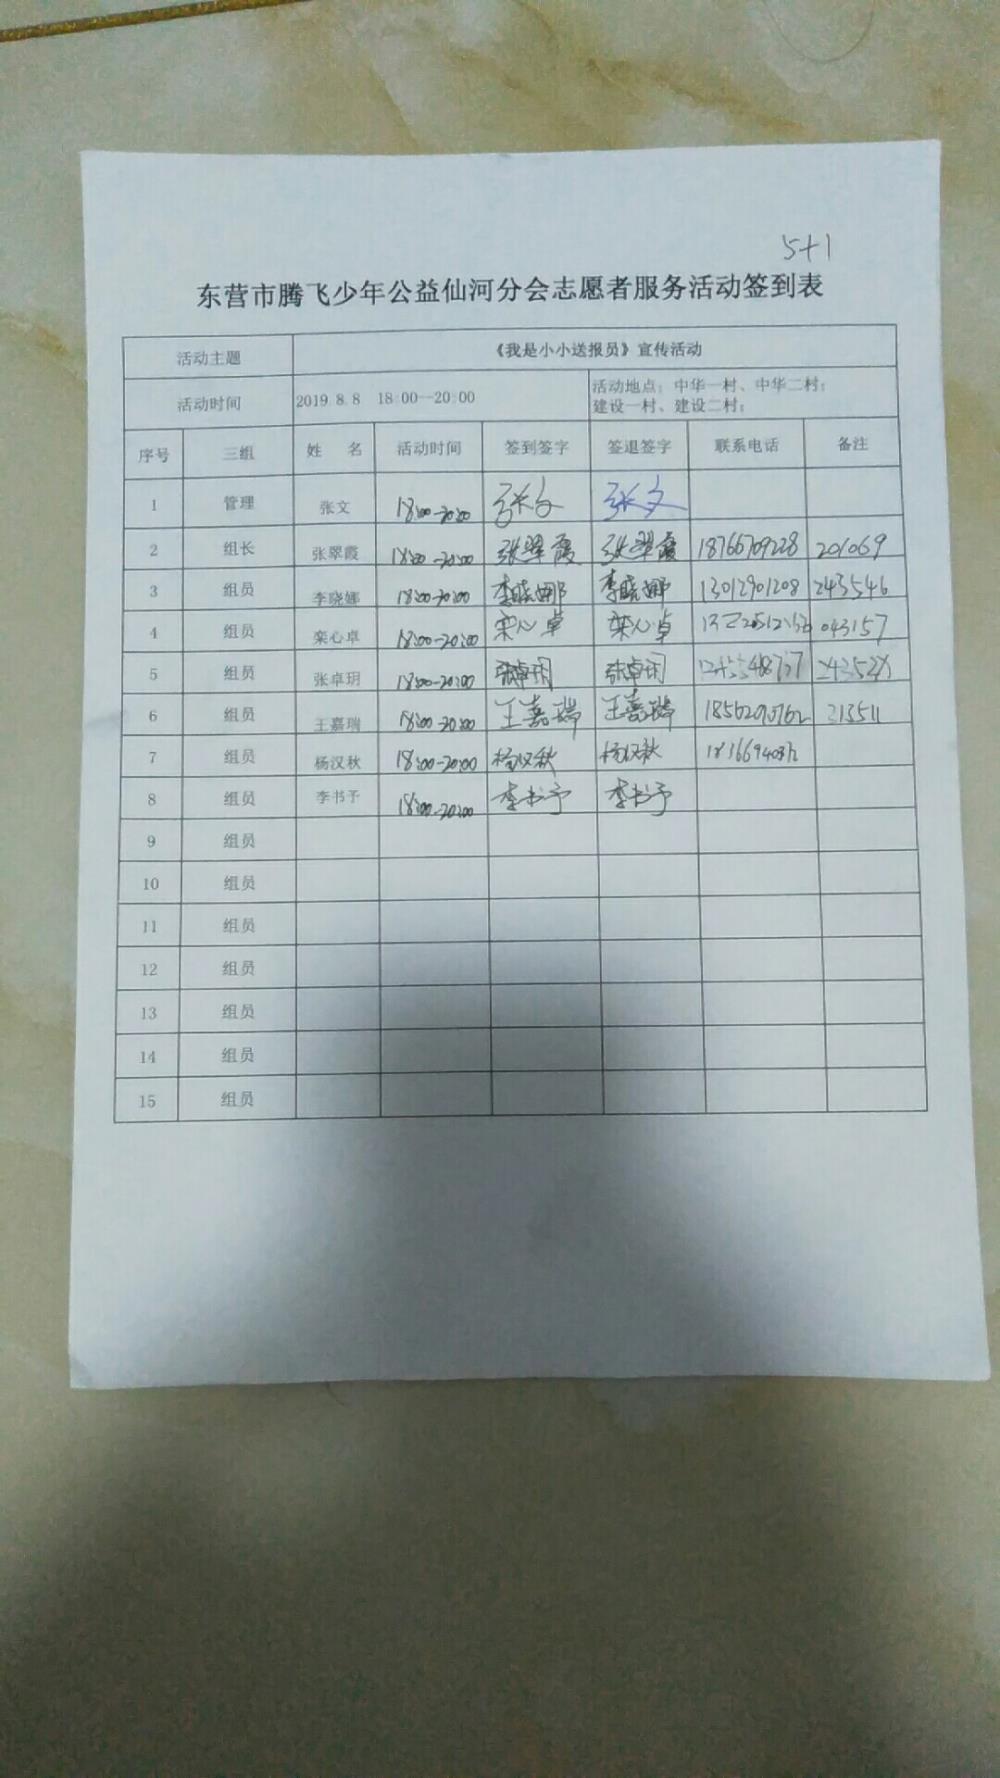 5+1
东营市腾飞少年公益仙河分会志愿者服务活动签到表
活动主题 《我是小小送报员》宣传活动
活动时间 2019.8.8 18:00--20:00 活动地点：中华一村、中华二村；
建设一村、建设二村；
序号 三组 姓 名 活动时间 签到签字 签退签字 联系电话 备注
1 管理 张文 18:00-20:00 张文 张文
2 组长 张翠霞 18:00-20:00 张翠霞 张翠霞 18766709228 201069
3 组员 李晓娜 18:00-20:00 李晓娜 李晓娜 13012901208 243546
4 组员 栾心卓 18:00-20:00 栾心卓 栾心卓 043157
5 组员 张卓玥 18:00-20:00 张卓玥 张卓玥
6 组员 王嘉瑞 18:00-20:00 王嘉瑞 王嘉瑞 213511
7 组员 杨汉秋 18:00-20:00 杨汉秋 杨汉秋
8 组员 李书予 18:00-20:00 李书予 李书予
9 组员
10 组员
11 组员
12 组员
13 组员
14 组员
15 组员